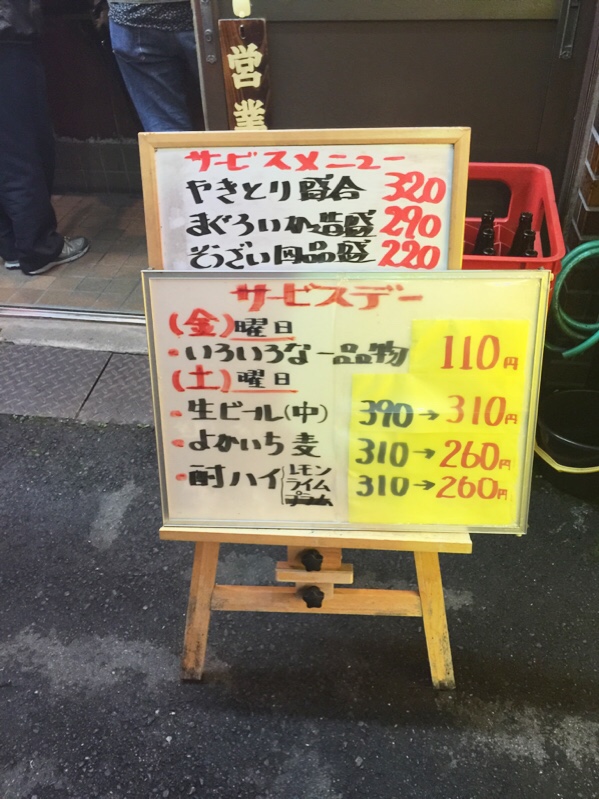 営業
サービスメニュー
やきとり盛合 320
まぐろいか造盛 290
そうざい四品盛 220
サービスデー
(金)曜日
・いろいろな一品物 110円
(土)曜日
・生ビール(中) 390→310円
・よかいち 麦 310→260円
・酎ハイ レモン 310→260円
ライム